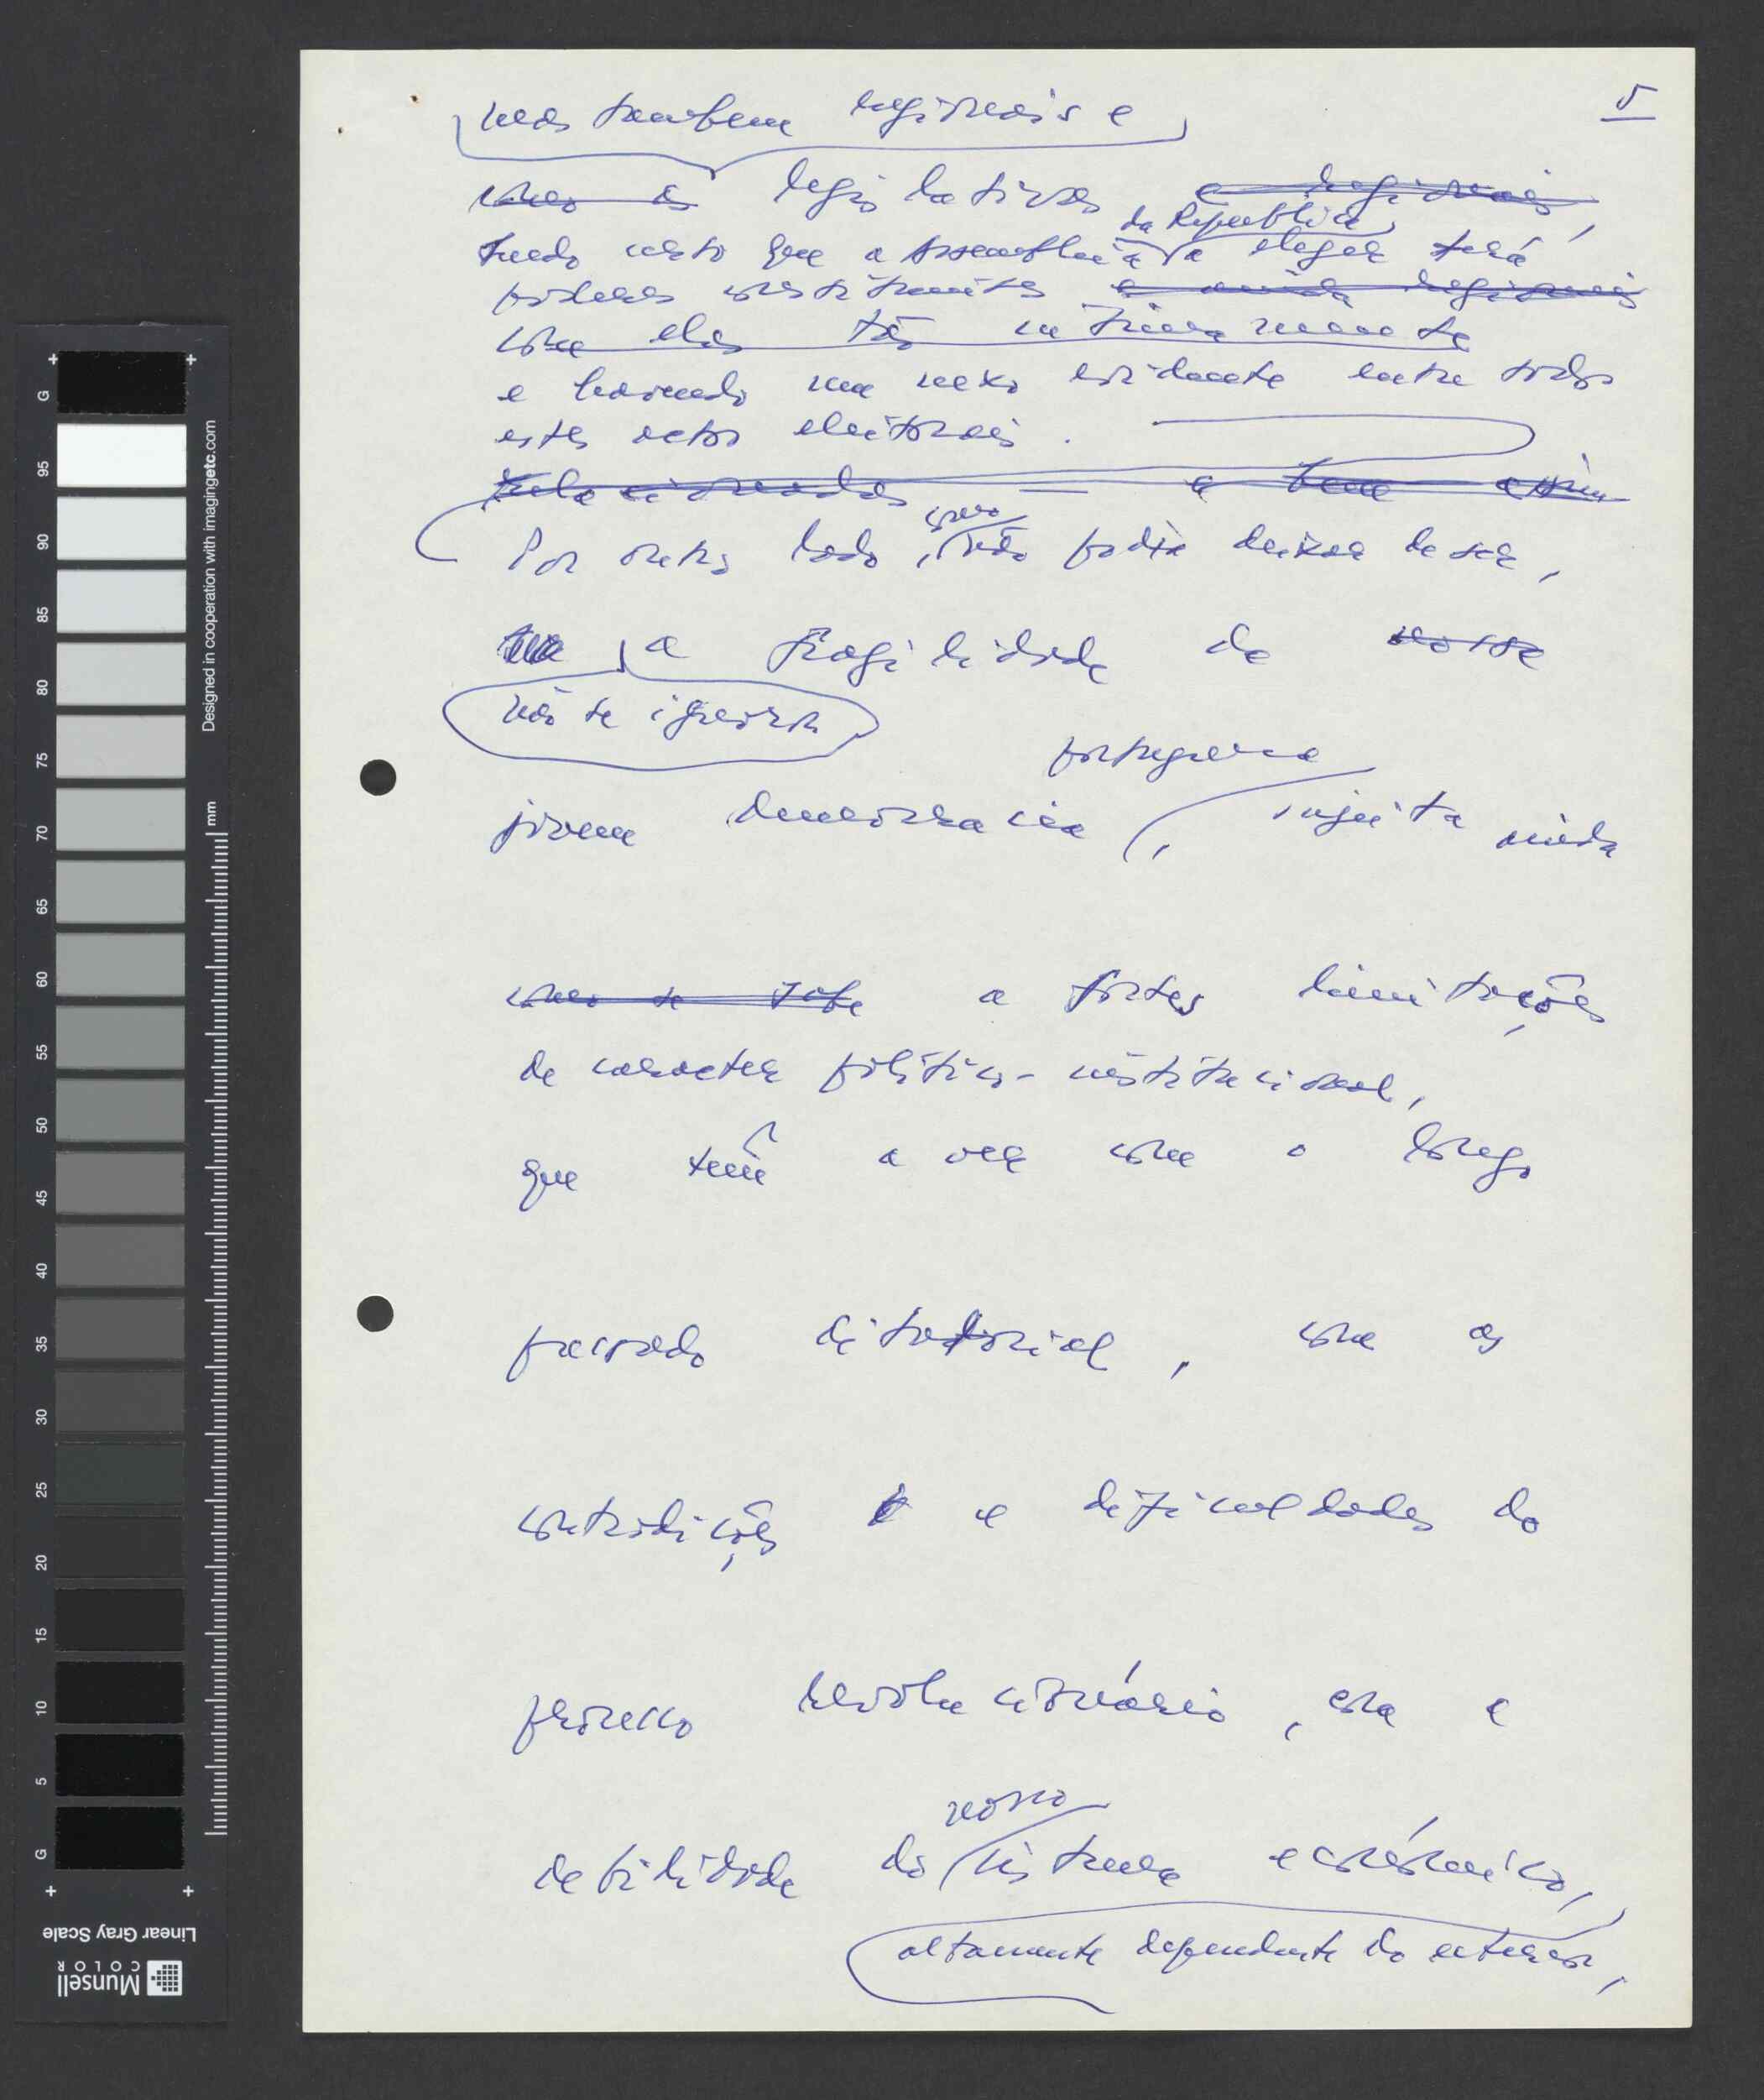 5
mas também regionais e
como as legislativas e regionais,
da República
sendo certo que a Assembleia a eleger terá
poderes constituintes e ainda regionais
com elas tão intimamente
e havendo um nexo evidente entre todos
estes actos eleitorais.
relacionadas — e bem assim
como
Por outro lado, não podia deixar de ser,
a fragilidade da nossa
não se ignora
portuguesa
jovem democracia, sujeita ainda
como se sabe a fortes limitações
de caracter político-institucional,
que têm a ver com o longo
passado ditatorial, com as
contradições e dificuldades do
processo revolucionário, com a
nosso
debilidade do sistema económico,
altamente dependente do exterior,
Designed in cooperation with imagingetc.com
mm
G 95 90 85 80 75 70 65 60 55 50 45 40 35 30 25 20 15 10 5 G
Linear Gray Scale
Munsell
COLOR